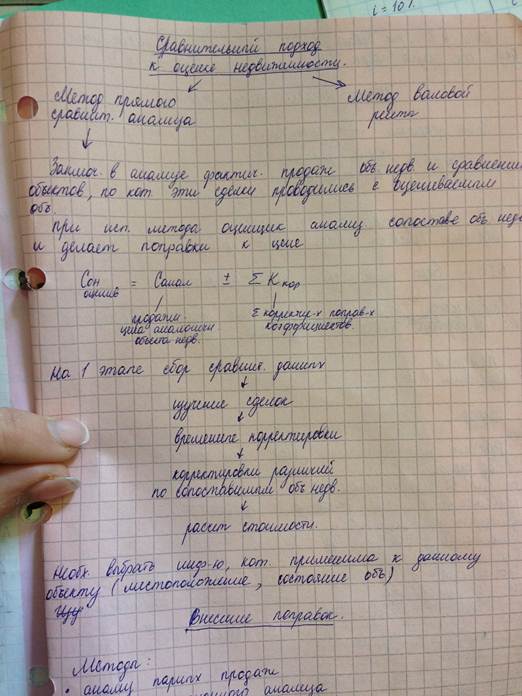 i = 10%
Сравнительный подход
к оценке недвижимости.
Метод прямого
сравнит. анализа
Метод валовой
ренты
Заключ. в анализе фактич. продаж объ. недв. и сравнении
объектов, по кот. эти сделки проводились с оцениваемым
объ.
При исп. метода оценщик анализ. сопостав объ. недв
и делает поправки к цене
Сон = Санал ± Σ Ккор
оценив
продажн.
цена аналогичн
объекта недв.
Σ корректир-х поправ-х
коэффициентов.
На 1 этапе сбор сравнит. данных
изучение сделок
временные корректировки
корректировки различий
по сопоставимым объ. недв.
расчет стоимости.
Необх. выбрать инф-ю, кот. применима к данному
объекту (местоположение, состояние объ)
Внесение поправок.
Методы:
• анализ парных продаж
анализа